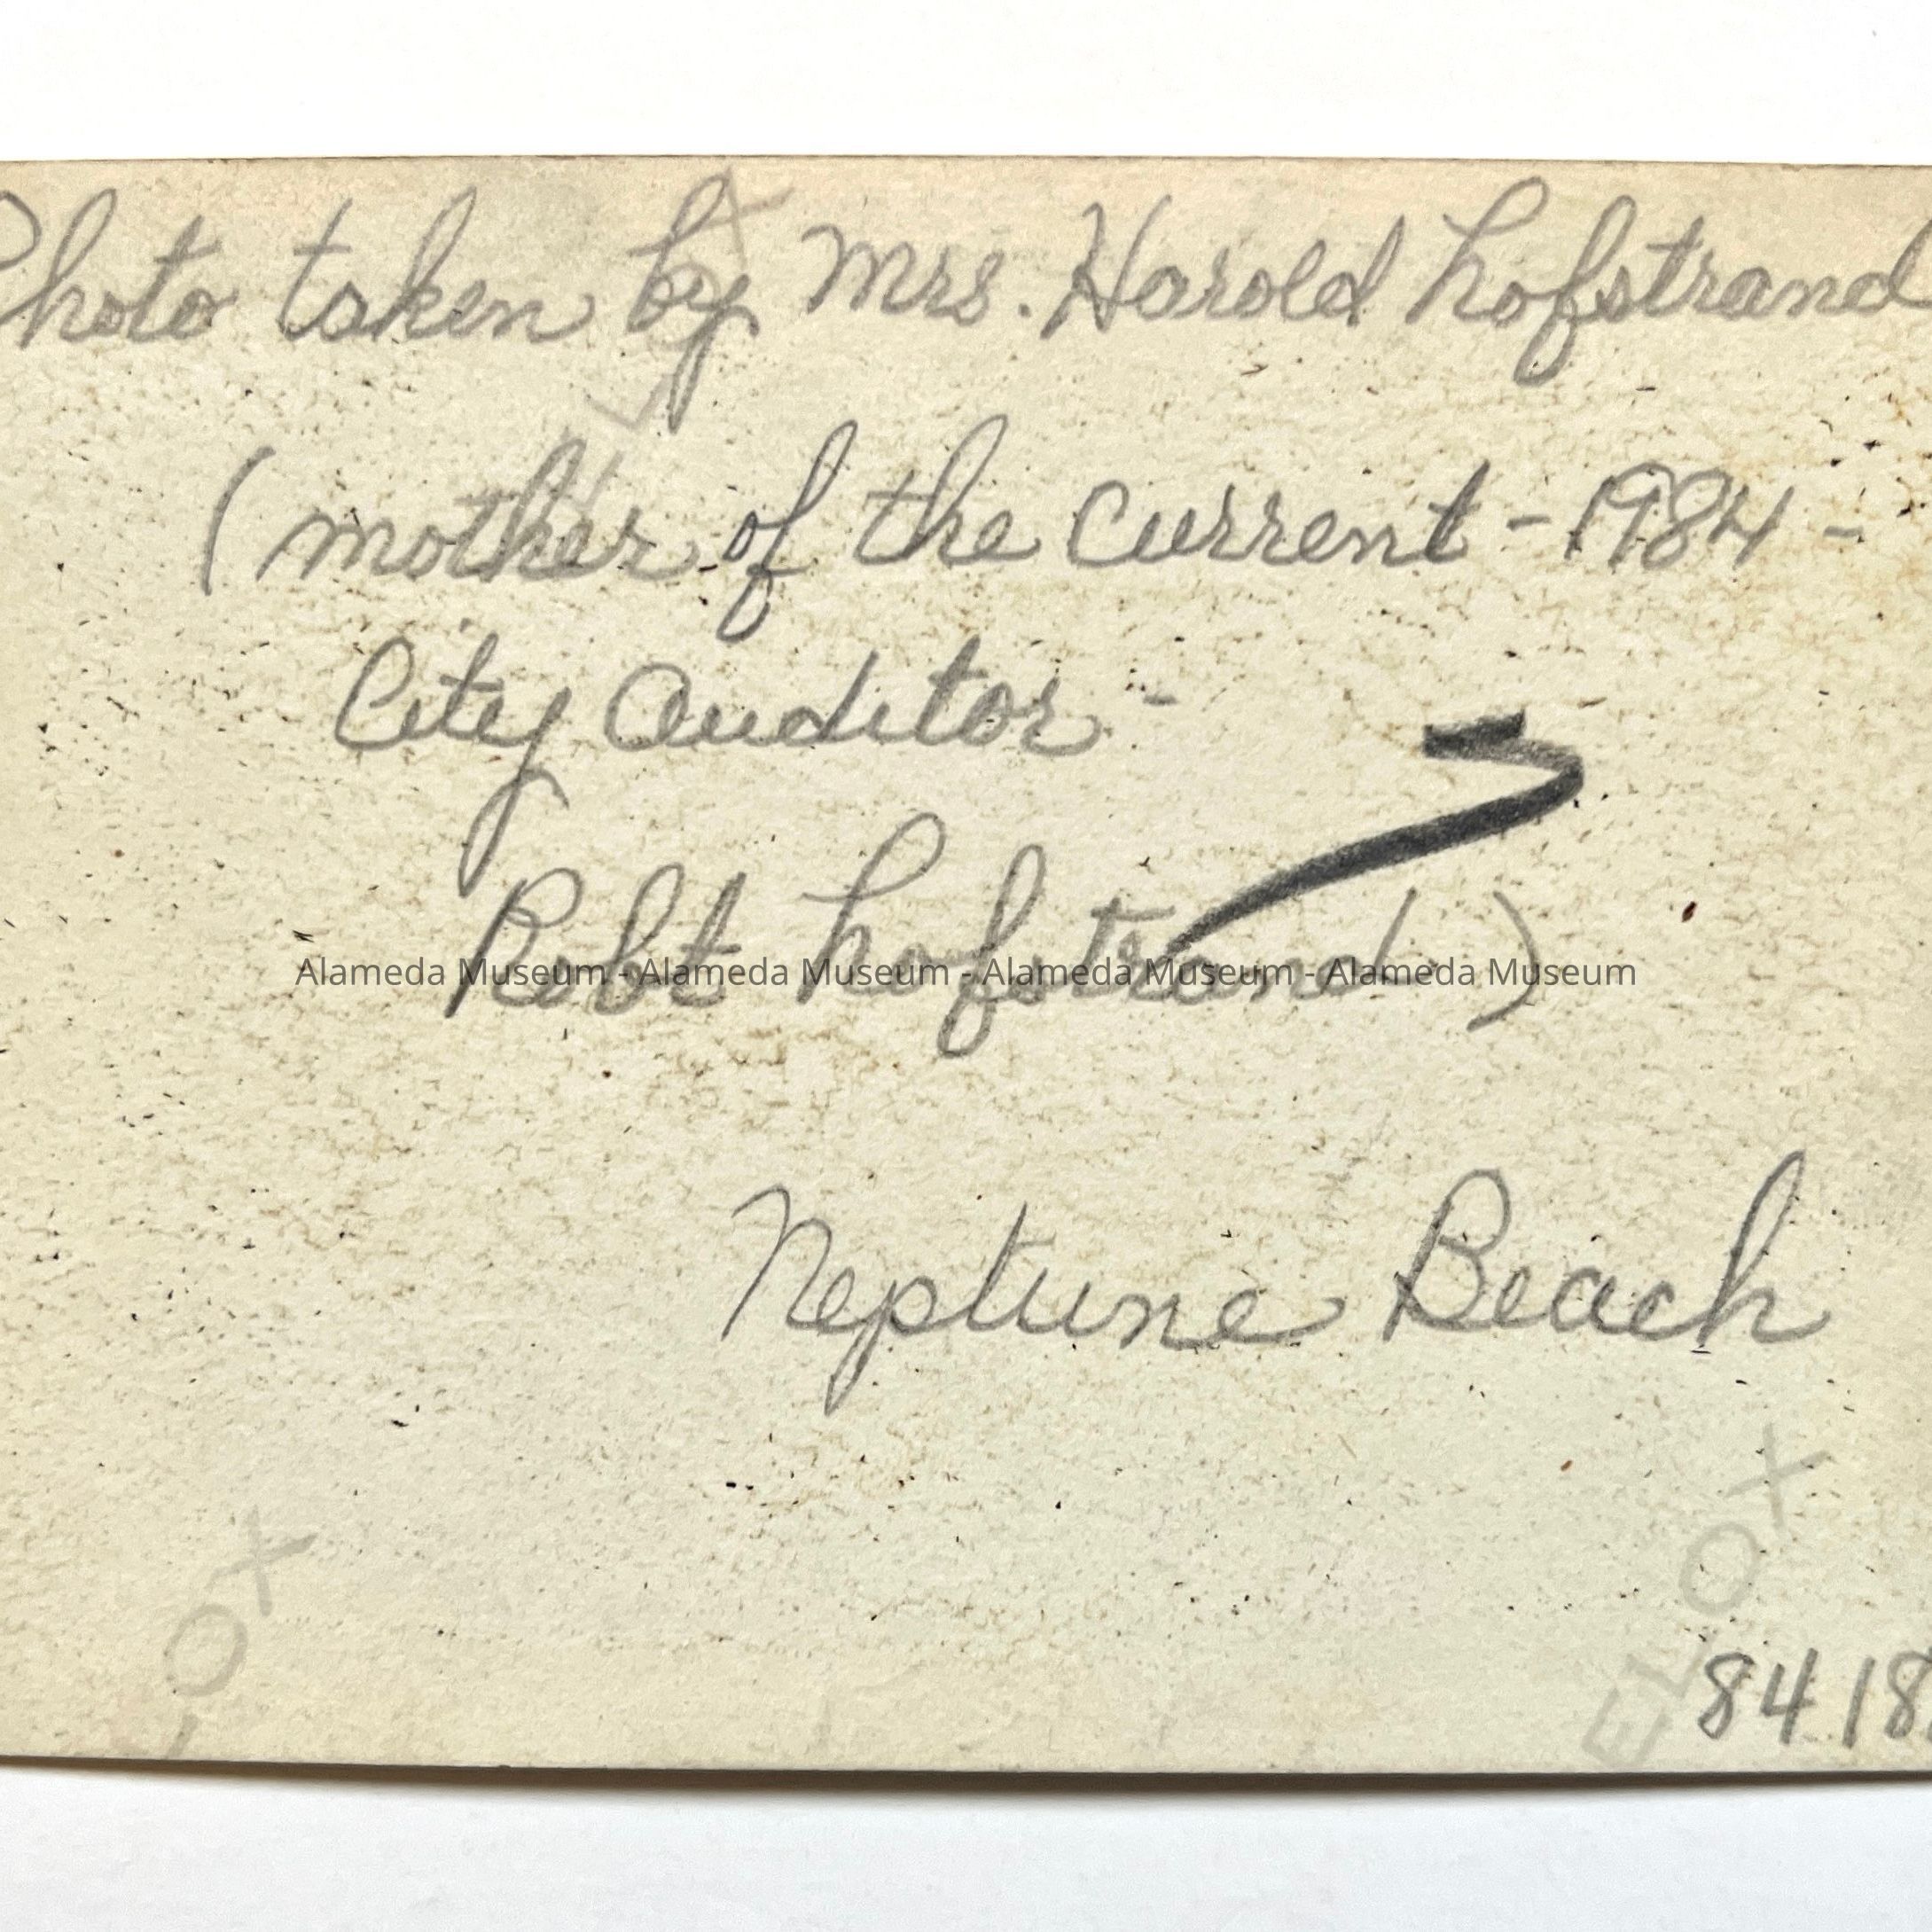 Photo taken by Mrs. Harold Hofstrand
(mother of the current - 1984 -
City Auditor -
Robt Hofstrand)
Alameda Museum - Alameda Museum - Alameda Museum - Alameda Museum
Neptune Beach
OX
ELOX
8418